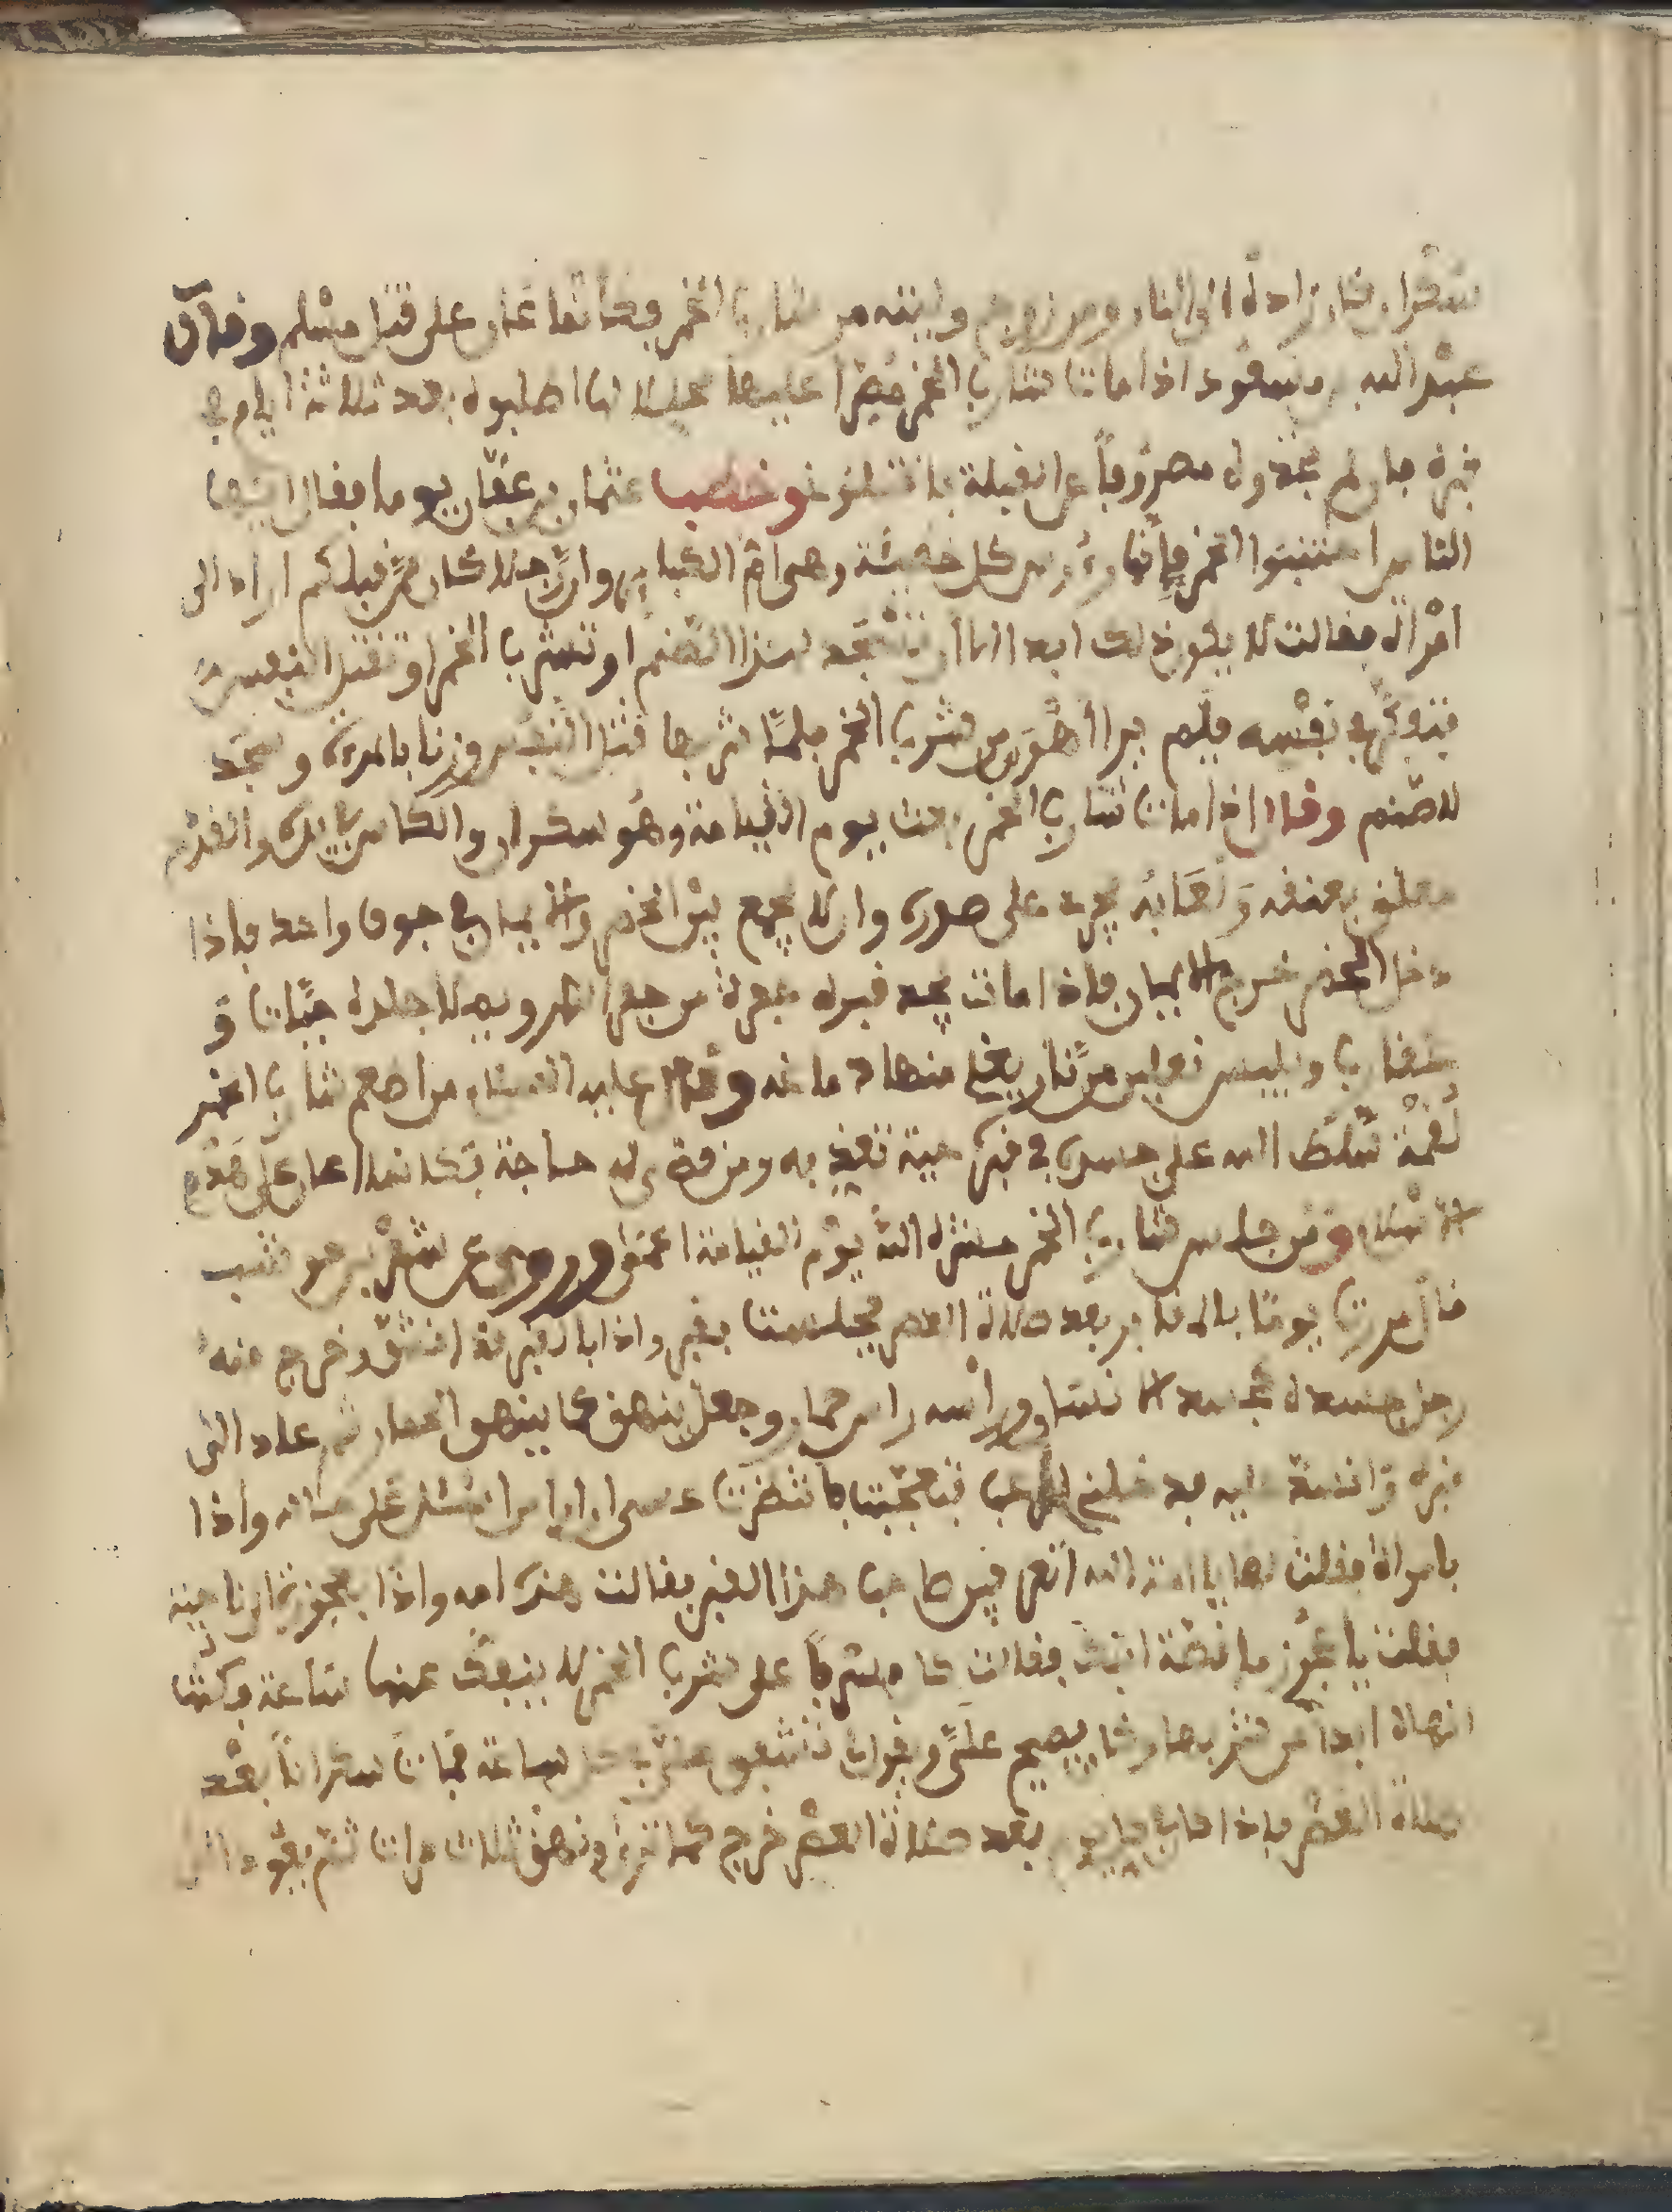 سكران فان زاده الى النار ومن زوج وابنته من شارب الخمر فكانما عان على قتل مسلم وقال
عبد الله بن مسعود اذا مات شارب الخمر عليها اصلبوه بعد ثلاثة ايام في
قبره فان لم تجدوه مصروفا عن القبلة فاقتلوني وخطب عثمان بن عفان يوما فقال ايها
الناس اجتنبوا الخمر فإنها رءوس كل خبيثة وهى ام الكبائر وان رجلا كان من قبلكم اراد الى
امراة فقالت لا يكون ذلك ابدا اما ان تسجد لهذا الصنم او تشرب الخمر او تقتل النفس
فتفكر في نفسه فلم ير اهون من شرب الخمر فلما شربها قتل النفس وزنا بالمرءة وسجد
للصنم وقال اذا مات شارب الخمر بعث يوم القيامة وهو سكران والكاس بيده والقدح
معلق بعنقه ولعابه يجرى على صدره وانه لا يجمع بين الخمر والايمان في جوف واحد فاذا
دخل الخمر خرج الايمان فاذا مات يجد قبره حفرة من حفر النار ويملا جلده حيات و
عقارب ويلبس نعلين من نار يغلى منها دماغه وقال عليه السلام من اطعم شارب الخمر
لقمة سلط الله على جسده في قبره حية تعذبه ومن قضى له حاجة فكانما اعان على هدم
الاسلام ومن جالس شارب الخمر حشره الله يوم القيامة اعمى وروى عن شهر بن حوشب
قال مررت يوما بالمقابر بعد صلاة العصر فجلست بقبر واذا بالقبر قد انشق وخرج منه
رجل جسده كجسد الانسان وراسه راس حمار وجعل ينهق كما ينهق الحمار ثم عاد الى
قبره وانسد عليه فتعجبت فانتظرت عسى ان ارى انسان واذا
بامراة فقلت لها يا امة الله اتعرفين صاحب هذا القبر فقالت هذه امه واذا بعجوز
فقلت يا عجوز ما قصة ابنك فقالت كان على شرب الخمر لا ينفك عنها ساعة وكنت
انهاه ابدا عن شربها وكان يصيح على ويقول ساعة فمات سكرانا بعد
صلاة العصر فاذا كان بعد صلاة العصر خرج كما تره وينهق ثلاث مرات ثم يعود الى